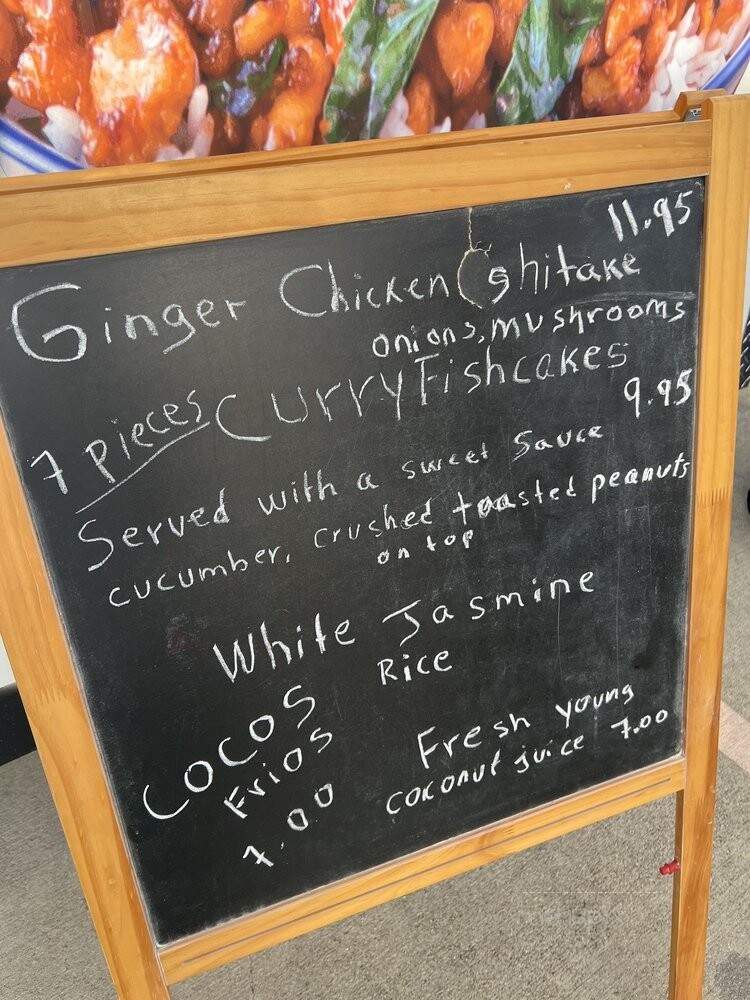 11.95
Ginger Chicken (shitake
onions, mushrooms
7 pieces Curry Fishcakes
9.95
Served with a sweet sauce
cucumber, crushed toasted peanuts
on top
White Jasmine
Rice
COCOS
Frios
7.00
Fresh young
coconut juice 7.00